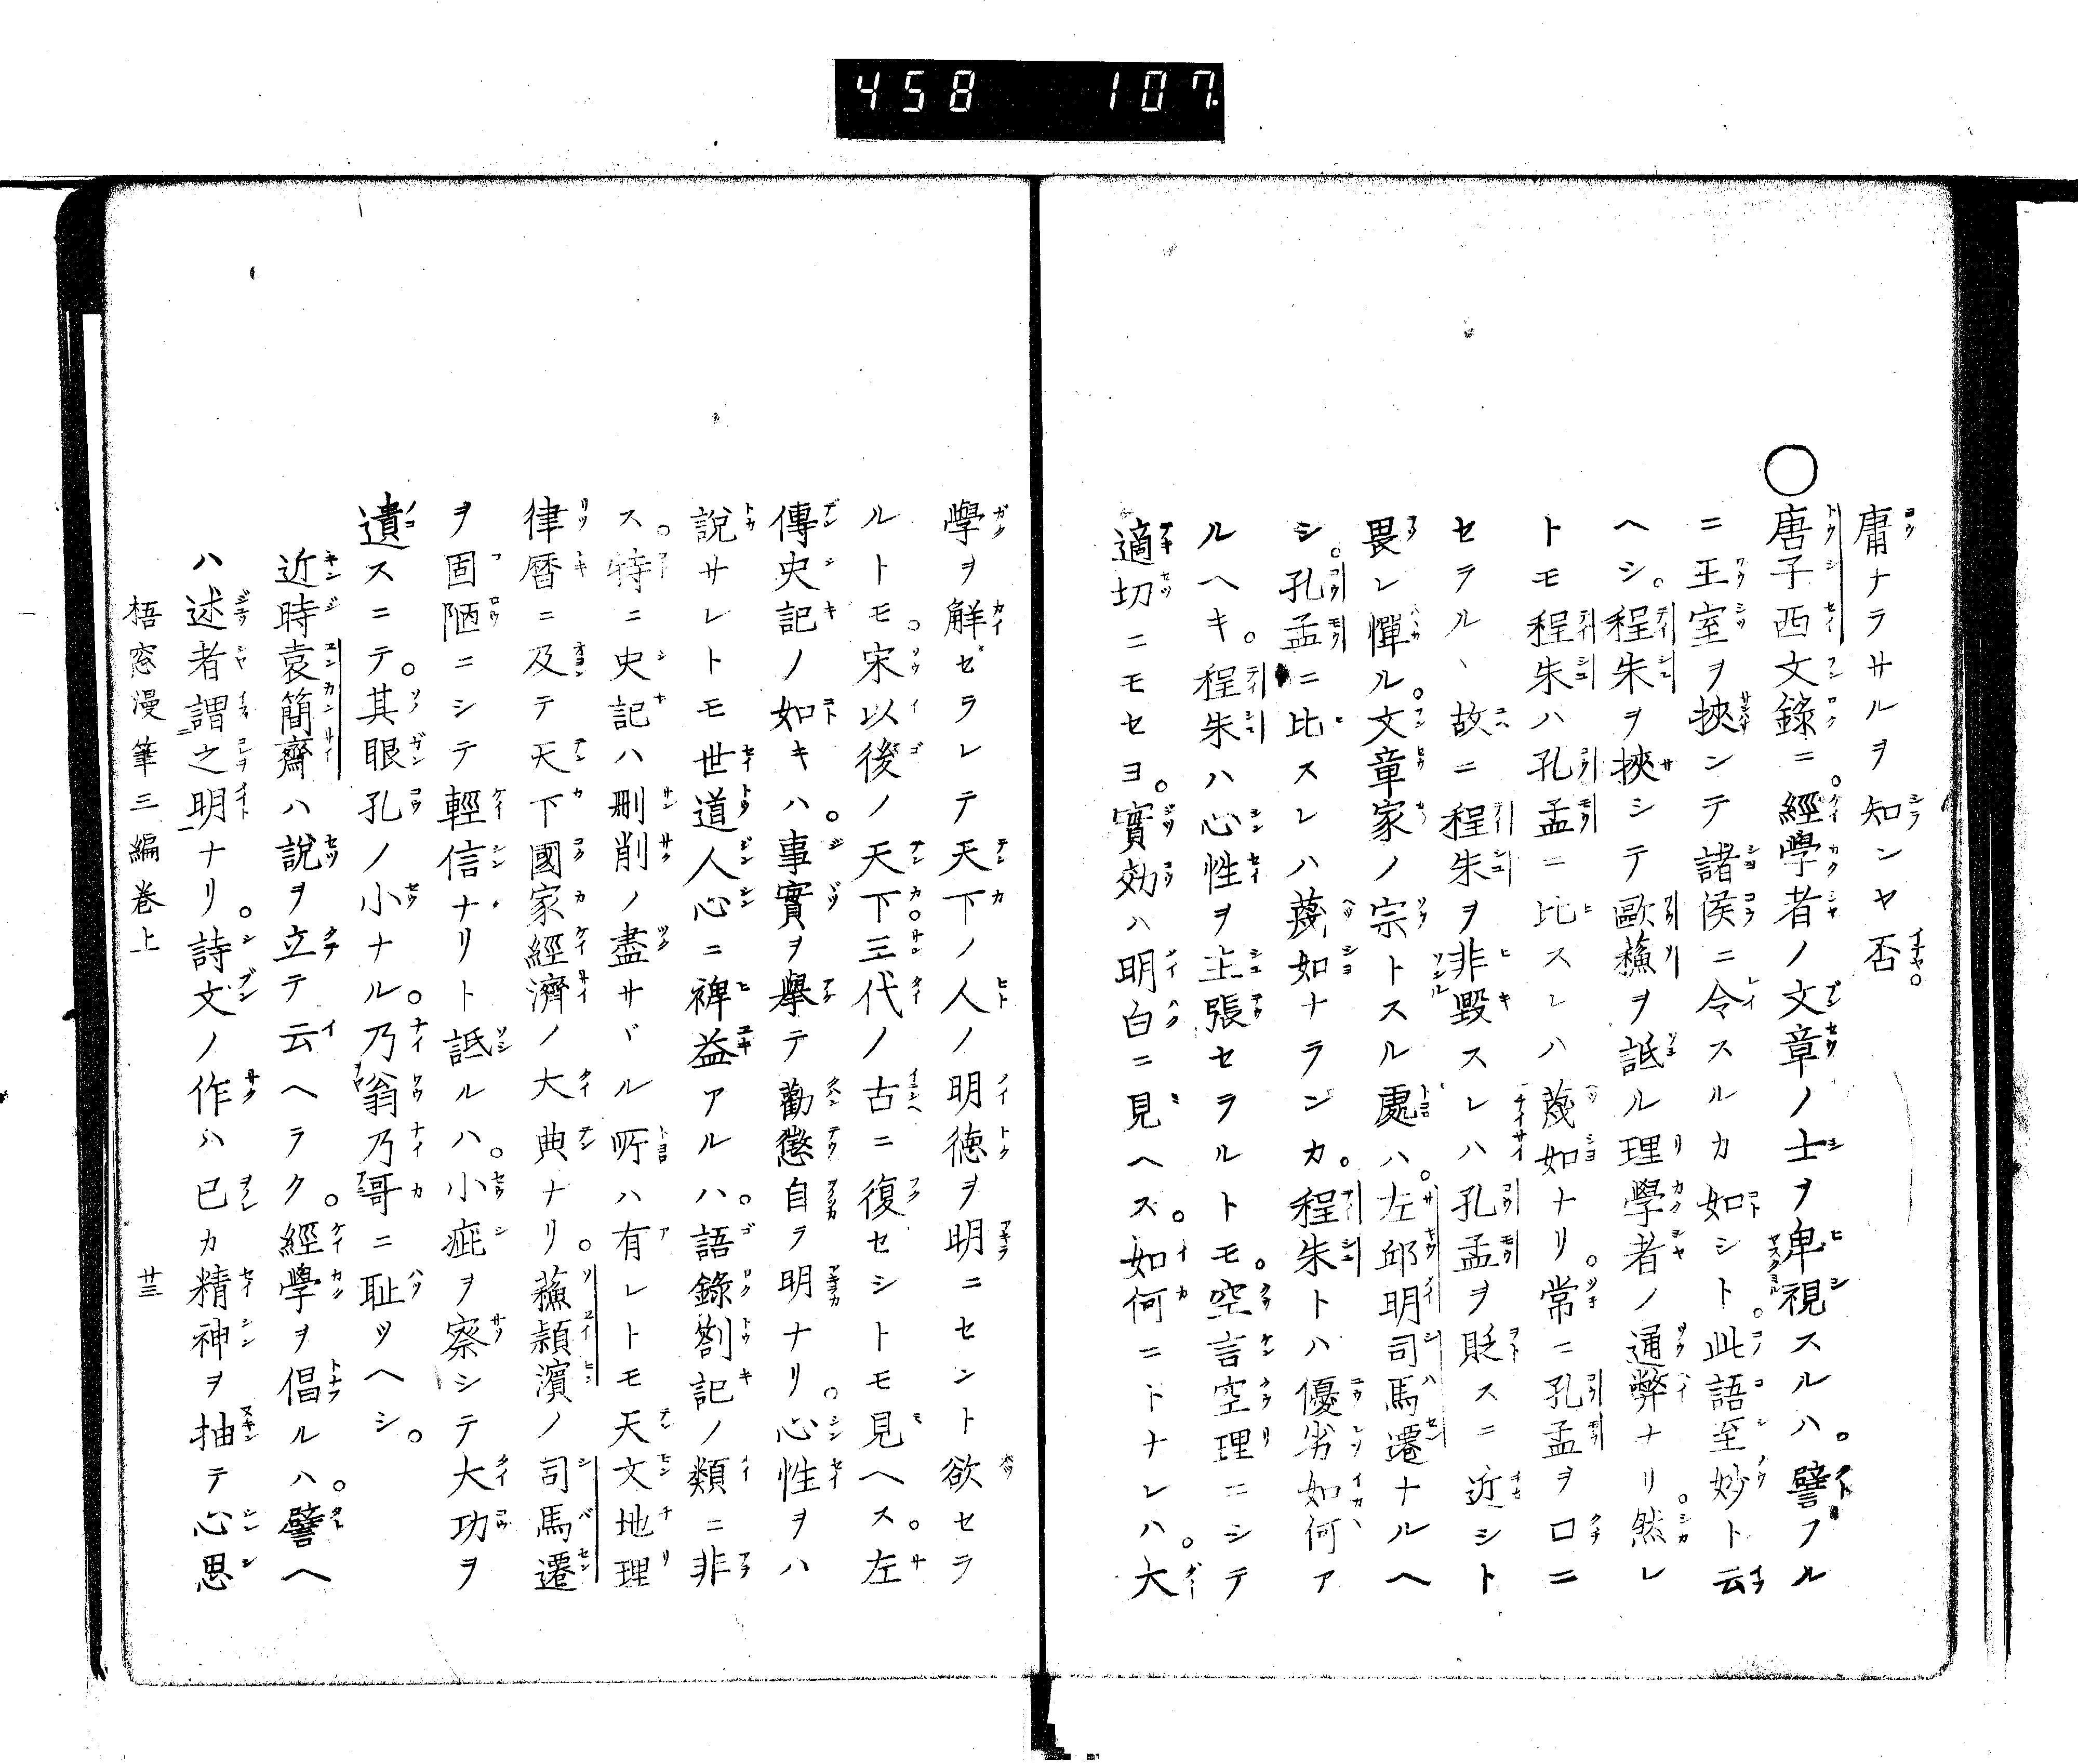 458 107.
庸ナラサルヲ知ンヤ否。
○唐子西文錄ニ。經學者ノ文章ノ士ヲ卑視スルハ。譬フル
ニ王室ヲ挾ンテ諸侯ニ令スルカ如シト。此語至妙ト云
ヘシ。程朱ヲ挾シテ歐蘓ヲ詆ル理學者ノ通弊ナリ。然レ
トモ程朱ハ孔孟ニ比スレハ蔑如ナリ。常ニ孔孟ヲ口ニ
セラルヽ故ニ程朱ヲ非毀スレハ孔孟ヲ貶スニ近シト
畏レ憚ル。文章家ノ宗トスル處ハ。左邱明司馬遷ナルヘ
シ。孔孟ニ比スレハ蔑如ナランカ。程朱トハ優劣如何ア
ルヘキ。程朱ハ心性ヲ主張セラルトモ。空言空理ニシテ
適切ニモセヨ。實効ハ明白ニ見ヘス。如何ニトナレハ。大
學ヲ解ゼラレテ天下ノ人ノ明德ヲ明ニセント欲セラ
ルトモ。宋以後ノ天下。三代ノ古ニ復セシトモ見ヘス。左
傳史記ノ如キハ。事實ヲ擧テ勸懲自ラ明ナリ。心性ヲハ
說サレトモ世道人心ニ裨益アルハ。語錄劄記ノ類ニ非
ス。特ニ史記ハ刪削ノ盡サヾル所ハ有レトモ天文地理
律曆ニ及テ天下國家經濟ノ大典ナリ。蘓潁濱ノ司馬遷
ヲ固陋ニシテ輕信ナリト詆ルハ。小疵ヲ察シテ大功ヲ
遺スニテ。其眼孔ノ小ナル。乃翁乃哥ニ耻ツヘシ。
近時袁簡齋ハ說ヲ立テ云ヘラク。經學ヲ倡ルハ。譬ヘ
ハ述者謂之明ナリ。詩文ノ作ハ已カ精神ヲ抽テ心思
梧窓漫筆三編卷上 廿三